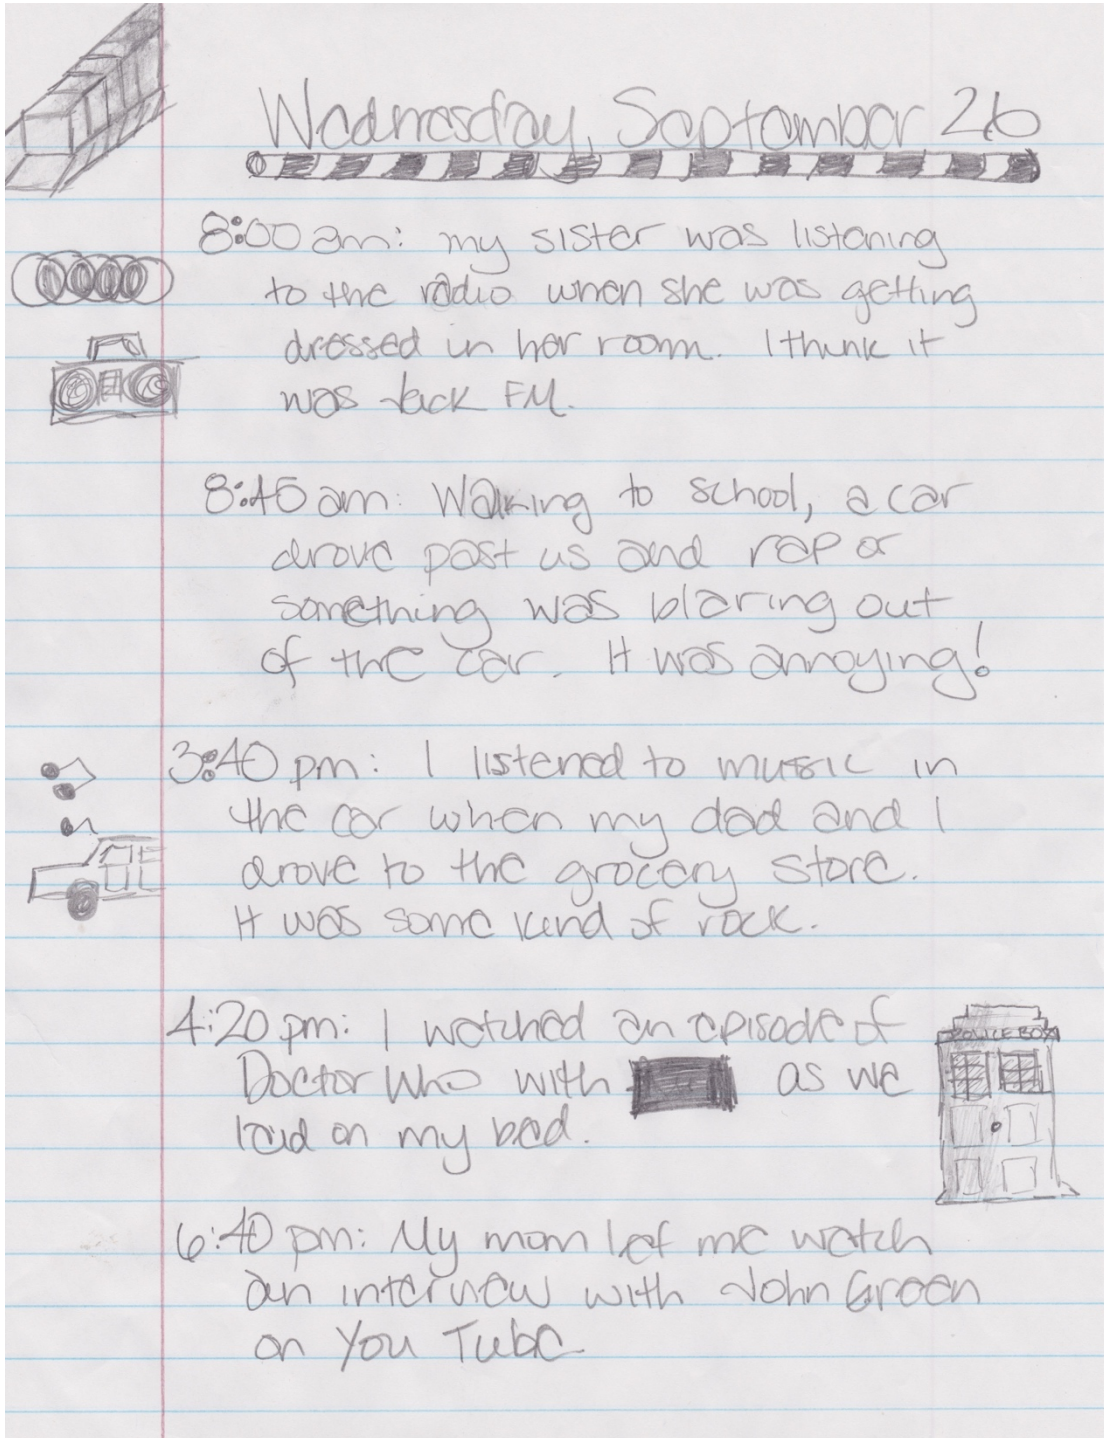 Wednesday, September 26
8:00 am: my sister was listening
to the radio when she was getting
dressed in her room. I think it
was Jack FM.
8:45 am: Walking to school, a car
drove past us and rap or
something was blaring out
of the car. It was annoying!
3:40 pm: I listened to music in
the car when my dad and I
drove to the grocery store.
It was some kind of rock.
4:20 pm: I watched an episode of
Doctor Who with as we
laid on my bed.
POLICE BOX
6:40 pm: My mom let me watch
an interview with John Green
on You Tube